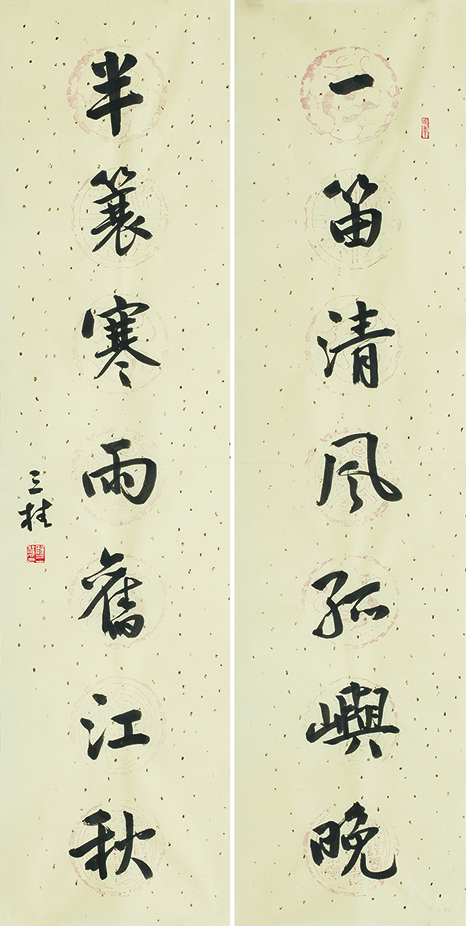 一笛清风孤嶼晚
半蓑寒雨舊江秋
三桂